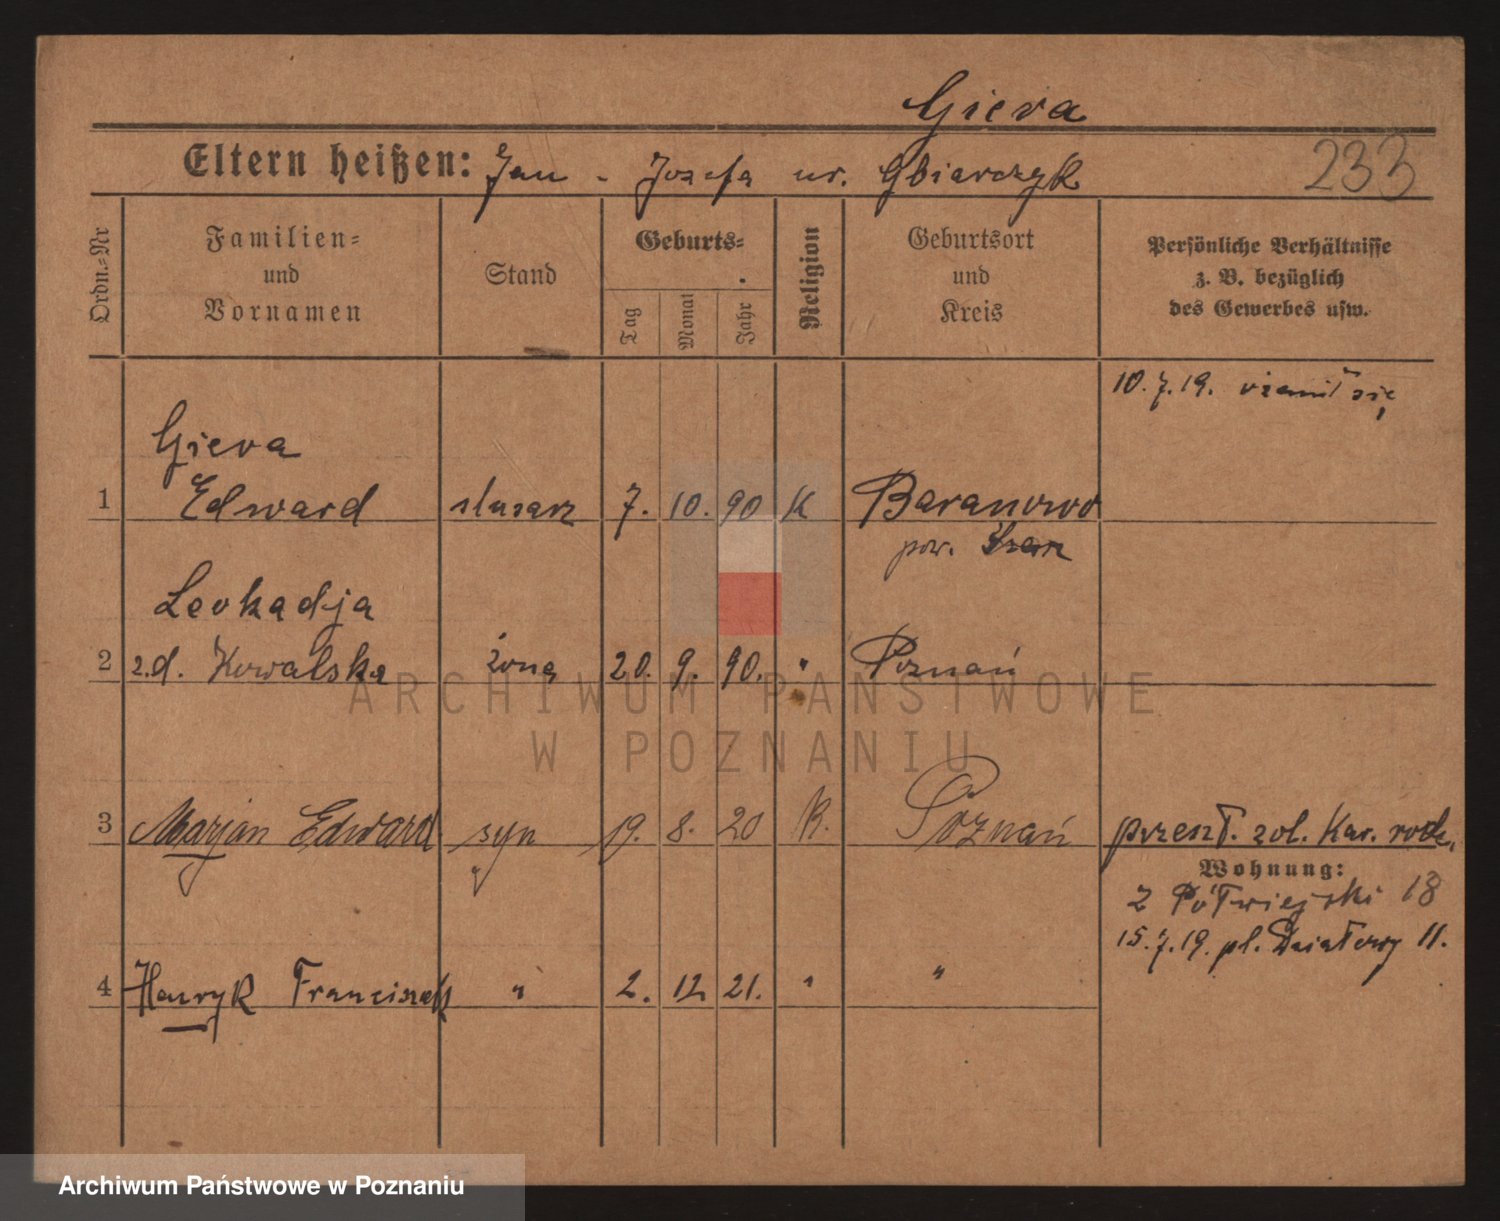 Giera
Eltern heißen: Jan - Jozefa ur. Gbiarczyk
233
Ordn.=Nr
Familien=
und
Vornamen
Stand
Geburts=
Tag
Monat
Jahr
Religion
Geburtsort
und
Kreis
Persönliche Verhältnisse
z. B. bezüglich
des Gewerbes usw.
10.7.19. ożenił się
Giera
1 Edward ślusarz 7. 10. 90 K Baranowo
pow.
Leokadja
2 z.d. Kowalska żona 20. 9. 90. " Poznań
ARCHIWUM PAŃSTWOWE
W POZNANIU
3 Marjan Edward syn 19. 8. 20 K. Poznań
przent. zol. Kar. rodz.
Wohnung:
Z Półwiejski 18
15.7.19. pl. Działowy 11.
4 Henryk Franciszek " 2. 12 21. " "
Archiwum Państwowe w Poznaniu